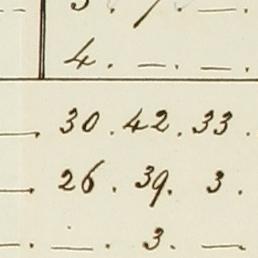 4. _. _.
_. 30. 42. 33.
_. 26. 39. 3.
_. _. 3. _